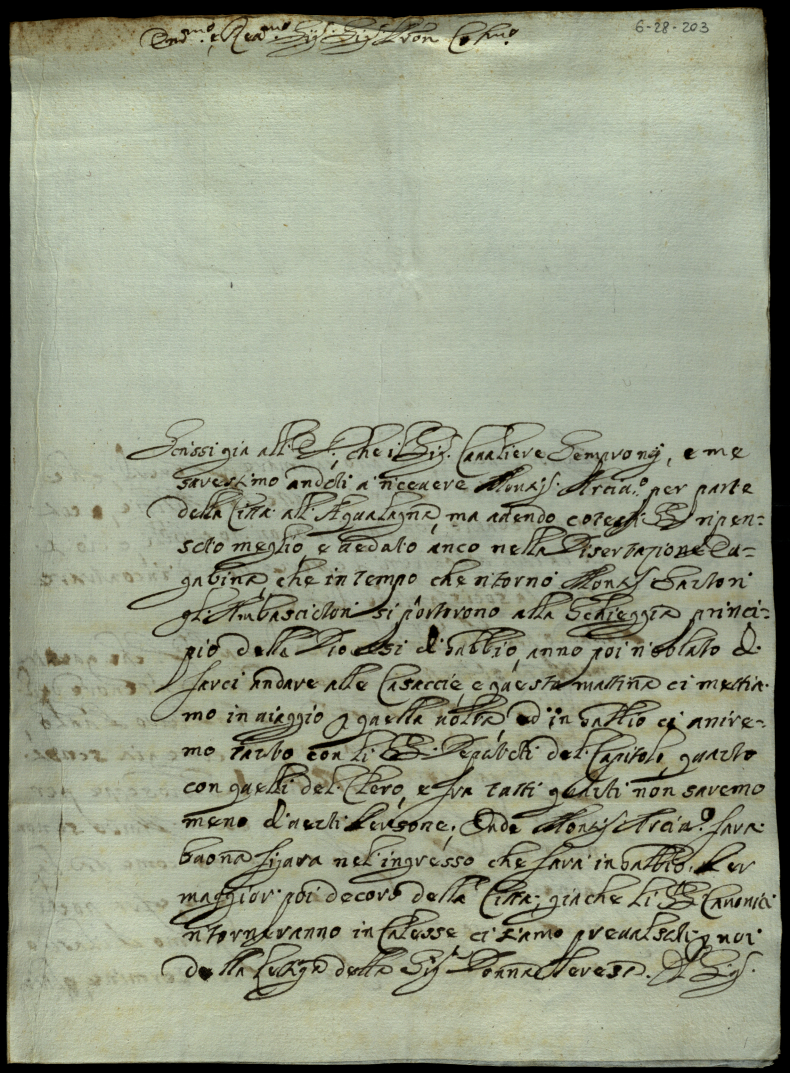 6-28-203
Ill.mo e Rev.mo Sig.r Sig.r Pron Col.mo
Scrissi già all. che i Sig. Cavaliere Sempronij, e me
saressimo andati a ricevere Mons. Arcia.o per parte
della Città all'Aqualagna, ma avendo cotesti SS. ripen-
sato meglio, e veduto anco nella Disertazione Eu-
gubina che in tempo che ritornò Mons. Sartori
gli Ambasciatori si portorono alla Schieggia princi-
pio della Diocesi di Gubbio, anno poi risoluto di
farci andare alle Casaccie, e questa mattina ci mettia-
mo in viaggio p. quella volta, ed in Gubbio ci unire-
mo tanto con li SS. Deputati del Capitolo, quanto
con quelli del Clero, e fra tutti quanti non saremo
meno di venti Persone; Onde Mons. Arcia.o farà
buona figura nel'ingresso che farà in Gubbio. Per
maggior poi decoro della Città, già che li SS. Canonici
ritorneranno in Calesse ci siamo prevalsuti p. noi
della della Sig.ra Donna Teresa.